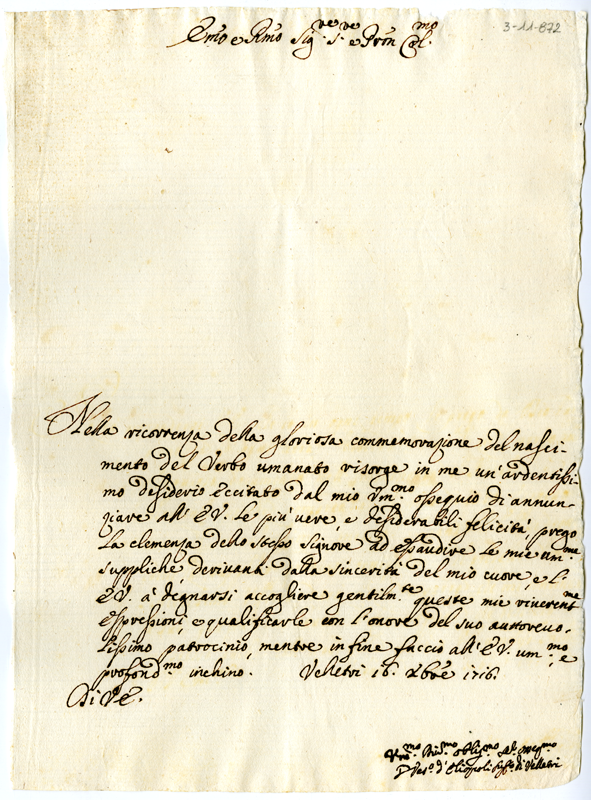 3-11-872
Emo e Rmo Sig.re S.re e Pron Col.mo
Nella ricorrenza della gloriosa commemorazione del nasci-
mento del Verbo umanato risorge in me un'ardentissi-
mo desiderio eccitato dal mio um.mo ossequio di annun-
ziare all'E V. le più vere, e desiderabili felicità, prego
la clemenza dello stesso Signore ad essaudire le mie um.me
suppliche derivanti dalla sincerità del mio cuore, e l'
E V. à degnarsi accogliere gentilm.te queste mie riverent.me
espressioni, e qualificarle con l'onore del suo autorevo-
lissimo patrocinio, mentre in fine faccio all'E V. um.mo, e
profond.mo inchino. Velletri 16. Xbre 1716.
Di V E.
d'Eliopoli di Velletri